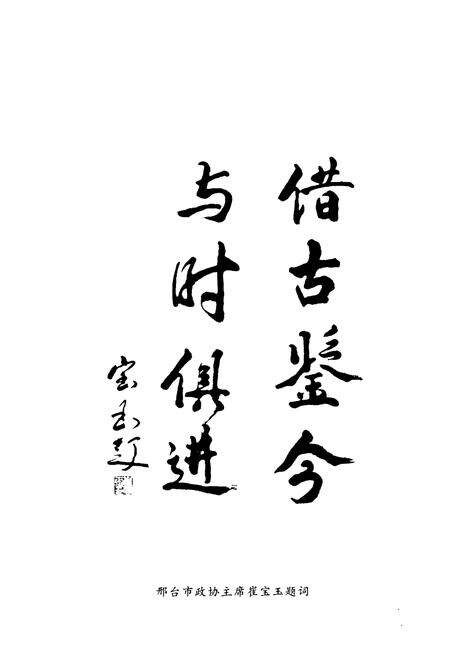 借古鉴今
与时俱进
宝玉题
邢台市政协主席崔宝玉题词